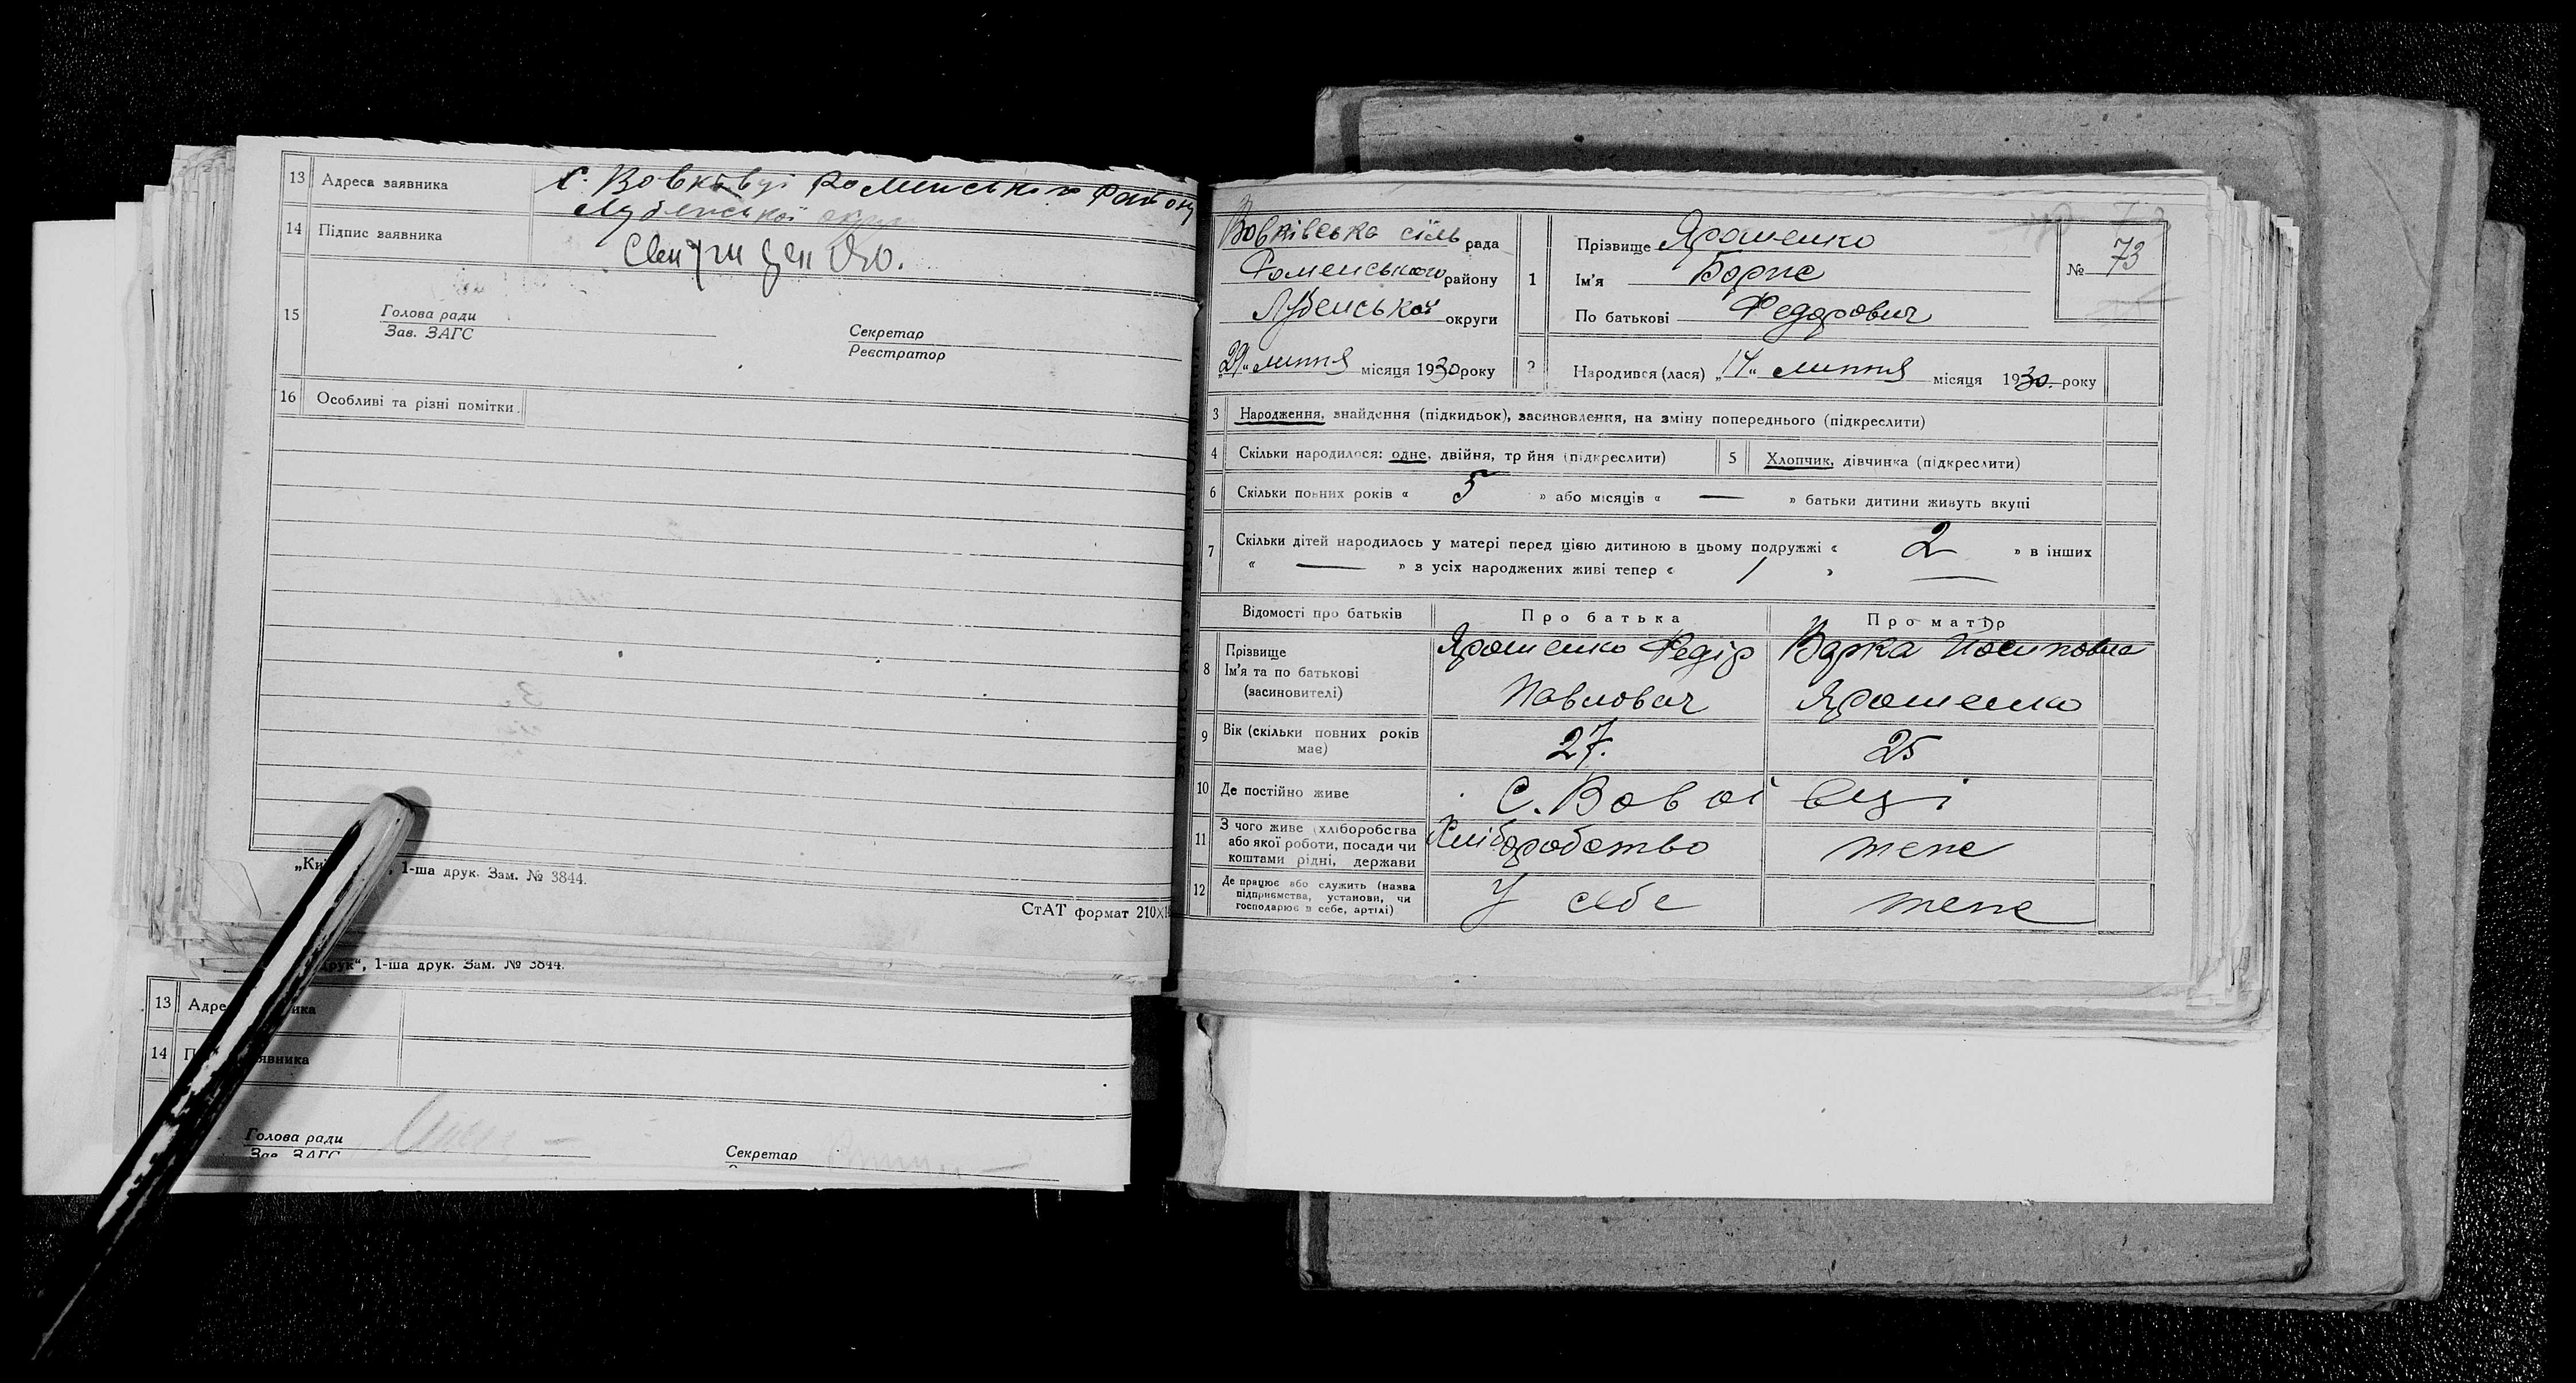 13 Адреса заявника С. Вовківці Роменського району
Лубенської округи
14 Підпис заявника
15 Голова ради
Зав. ЗАГС
Секретар
Реєстратор
16 Особливі та різні помітки
1-ша друк. Зам. № 3844.
СтАТ формат 210×
друк“, 1-ша друк. Зам. № 3844.
13
14
Голова ради
Зав. ЗАГС
Секретар
Вовківська сіль рада
Роменського району
Лубенської округи
„29“ липня місяця 1930 року
1 Прізвище Ярошенко
Ім'я Борис
По батькові Федорович
№ 73
2 Народився (лася) „14“ липня місяця 1930. року
3 Народження, знайдення (підкидьок), засиновлення, на зміну попереднього (підкреслити)
4 Скільки народилося: одне, двійня, тройня (підкреслити) 5 Хлопчик, дівчинка (підкреслити)
6 Скільки повних років « 5 » або місяців « — » батьки дитини живуть вкупі
7 Скільки дітей народилось у матері перед цією дитиною в цьому подружжі « 2 » в інших
« — » з усіх народжених живі тепер « 1 »
Відомості про батьків Про батька Про матір
8 Прізвище
Ім'я та по батькові
(засиновителі)
Ярошенко Федір
Павлович
Варка Йосиповна
Ярошенко
9 Вік (скільки повних років
має) 27. 25
10 Де постійно живе С. Вовківці
11 З чого живе (хліборобства
або якої роботи, посади чи
коштами рідні, держави
Хліборобство теж
12 Де працює або служить (назва
підприємства, установи, чи
господарює в себе, артілі)
У себе теж